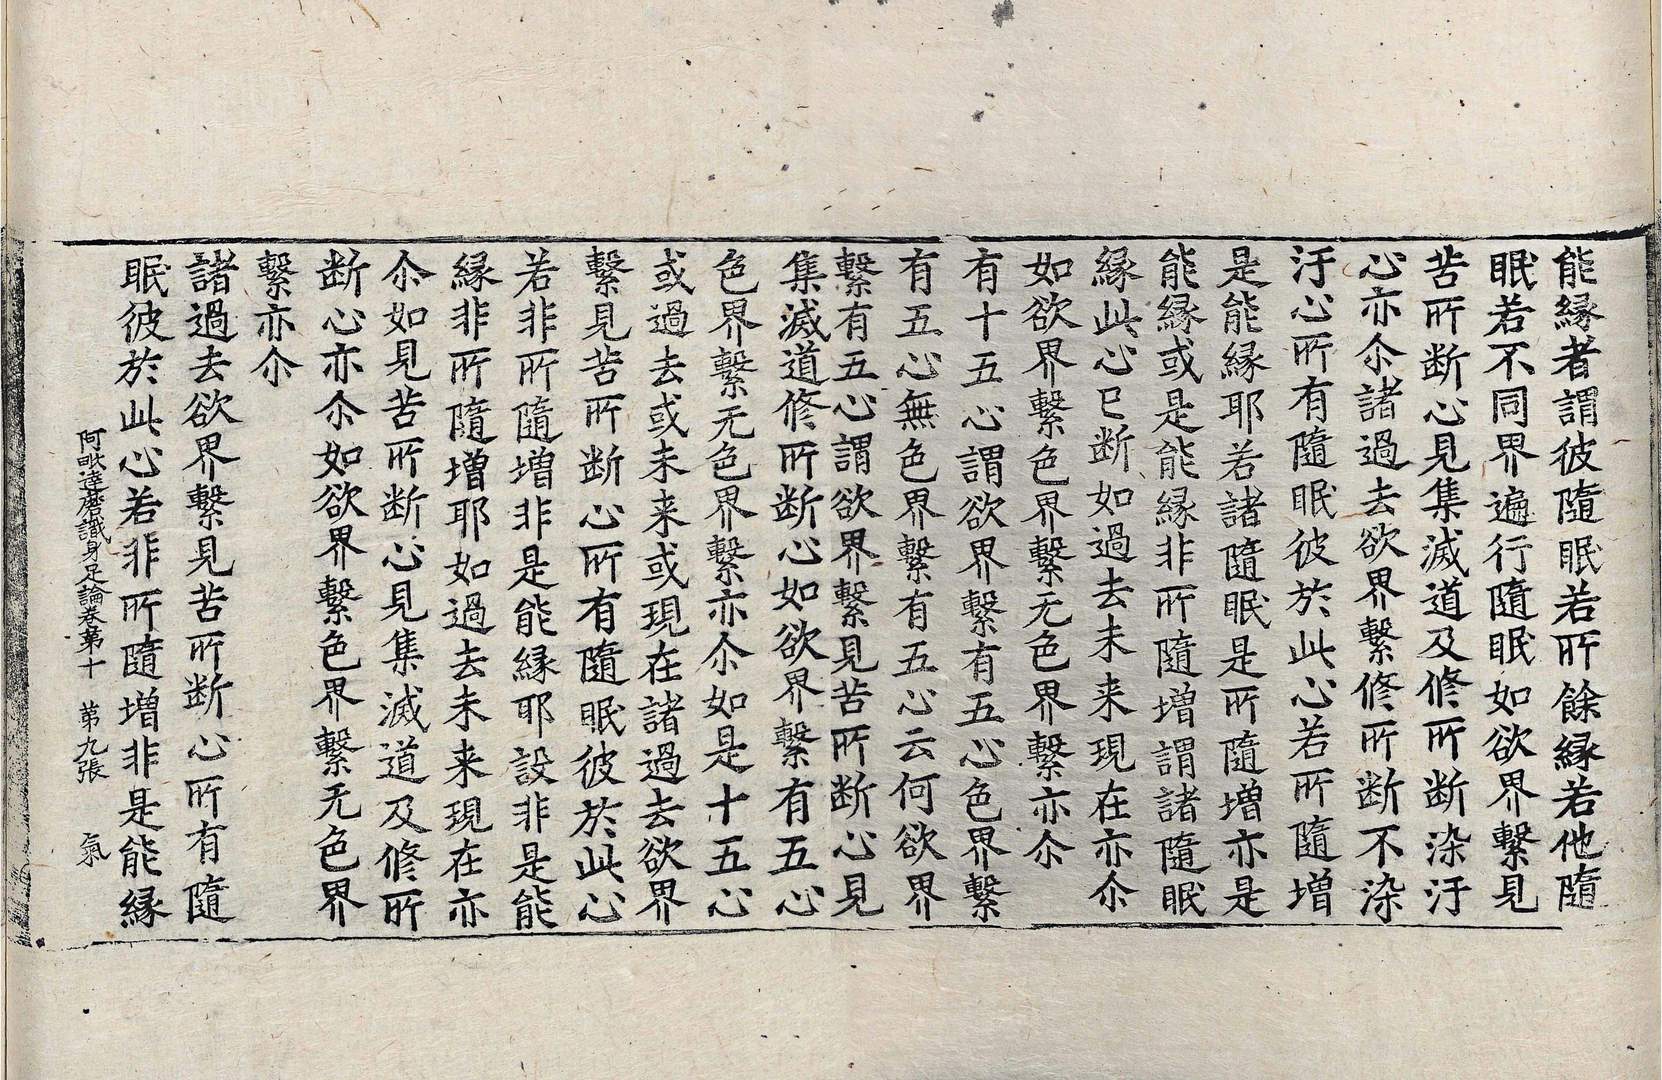 能縁者謂彼隨眠若所餘縁若他隨
眠若不同界遍行隨眠如欲界繫見
苦所断心見集滅道及修所断染汙
心亦尒諸過去欲界繫修所断不染
汙心所有隨眠彼於此心若所隨增
是能縁耶若諸隨眠是所隨增亦是
能縁或是能縁非所隨增謂諸隨眠
縁此心已断如過去未来現在亦尒
如欲界繫色界繫无色界繫亦尒
有十五心謂欲界繫有五心色界繫
有五心無色界繫有五心云何欲界
繫有五心謂欲界繫見苦所断心見
集滅道修所断心如欲界繫有五心
色界繫无色界繫亦尒如是十五心
或過去或未来或現在諸過去欲界
繫見苦所断心所有隨眠彼於此心
若非所隨增非是能縁耶設非是能
縁非所隨增耶如過去未来現在亦
尒如見苦所断心見集滅道及修所
断心亦尒如欲界繫色界繫无色界
繫亦尒
諸過去欲界繫見苦所断心所有隨
眠彼於此心若非所隨增非是能縁
阿毗達磨識身足論卷第十 第九張 氣